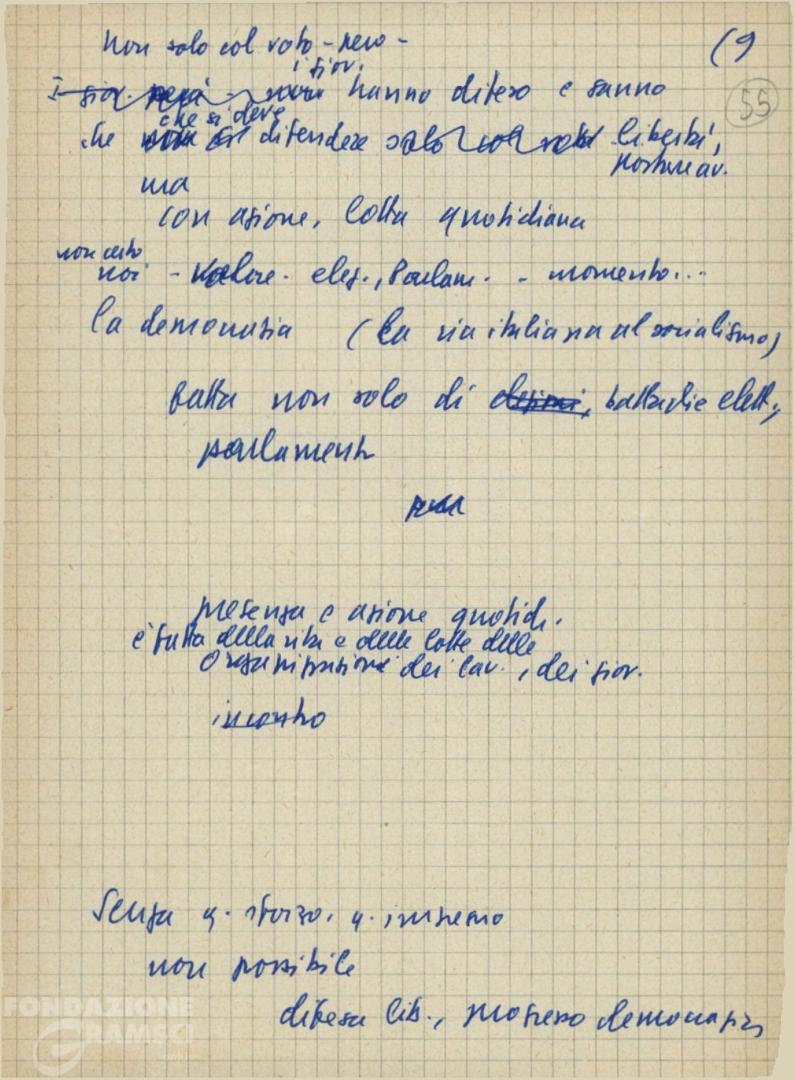 Non solo col voto - però -
(9
55
i giov.
I giov. però - non hanno difeso e sanno
che si deve
che non si difendere solo col voto libertà,
portare av.
ma
con azione, lotta quotidiana
non certo
noi - valore - elez., Parlam. - momento...
la democrazia (la via italiana al socialismo)
fatta non solo di elezioni, battaglie elett.,
parlamento
presenza e azione quotid.
è fatta della vita e delle lotte delle
organizzazioni dei lav., dei giov.
incontro
Senza q. sforzo, q. impegno
non possibile
difesa lib., progresso democrazia
FONDAZIONE
GRAMSCI